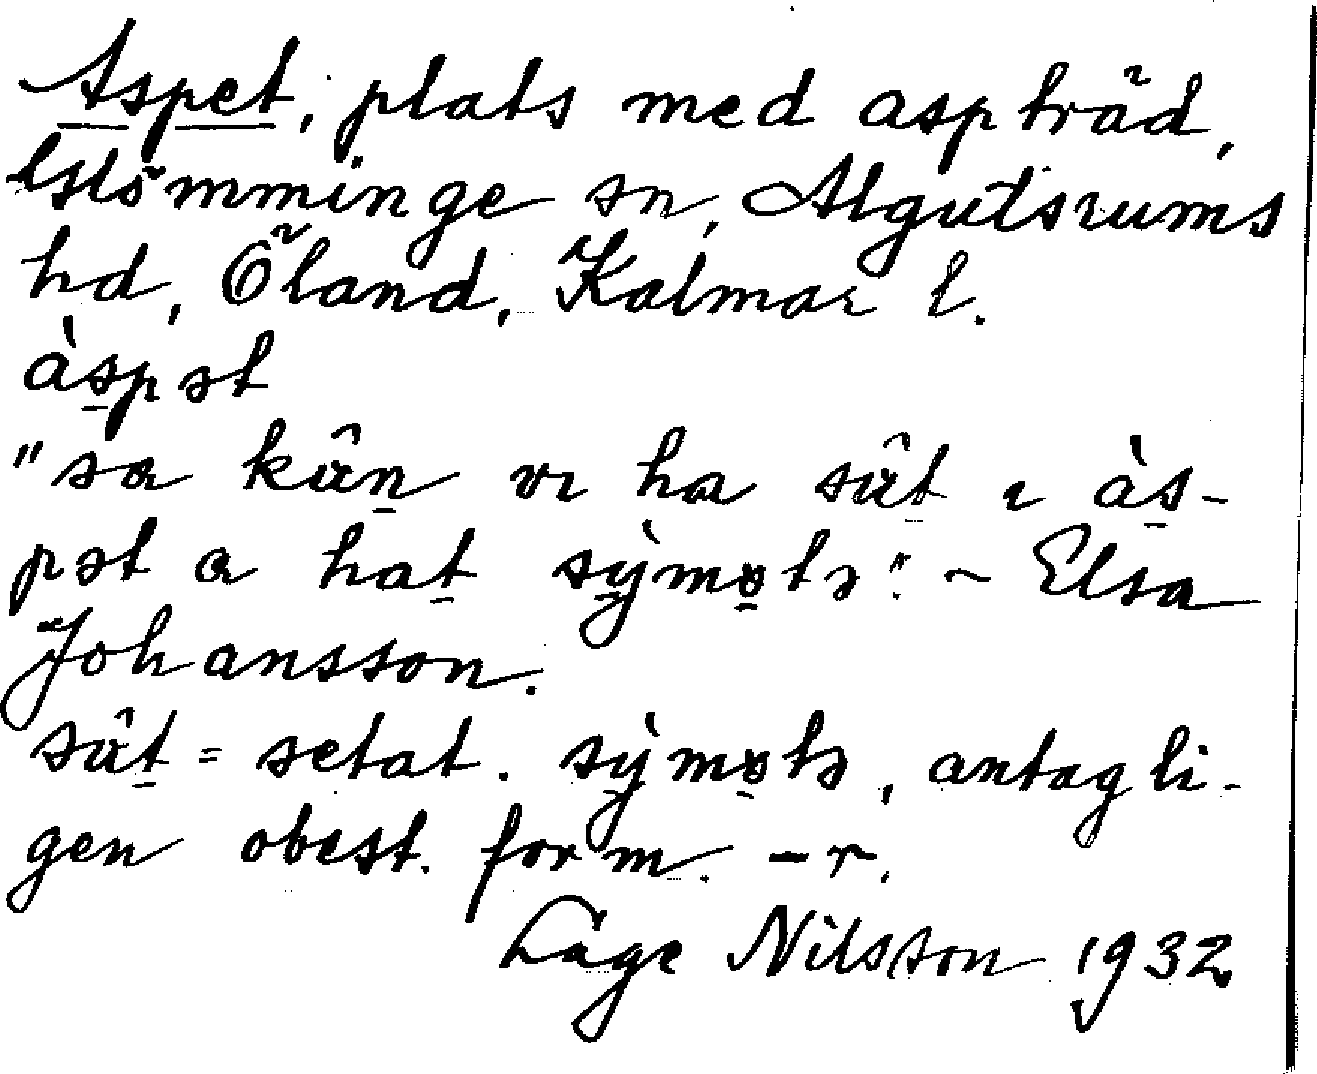 Aspet, plats med aspträd,
Glömminge sn, Algutsrums
hd, Öland, Kalmar l.
àspət
"sa kân vi ha sât i às-
pət a hat sỳmøtə". – Elsa
Johansson.
sât = setat. sỳmøtə, antagli-
gen obest. form. -r.
Åage Nilsson 1932